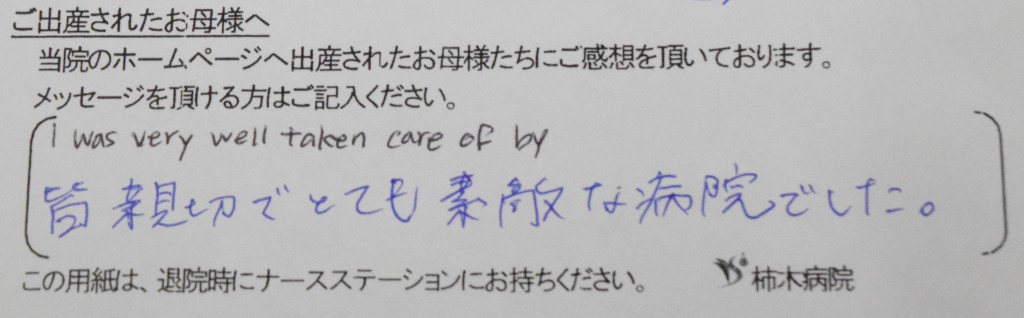 ご出産されたお母様へ
当院のホームページへ出産されたお母様たちにご感想を頂いております。
メッセージを頂ける方はご記入ください。
i was very well taken care of by
皆親切でとても素敵な病院でした。
この用紙は、退院時にナースステーションにお持ちください。 柿木病院